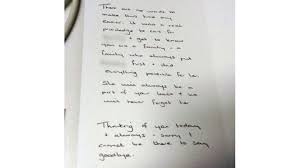 There are no words to
make this time any
easier. It was a real
privilege to care for
+ get to know
you as a family - a
family who always put
first + did
everything possible for her.
She will always be a
part of your lives + we
will never forget her
Thinking of you today
+ always - sorry I
cannot be there to say
goodbye.